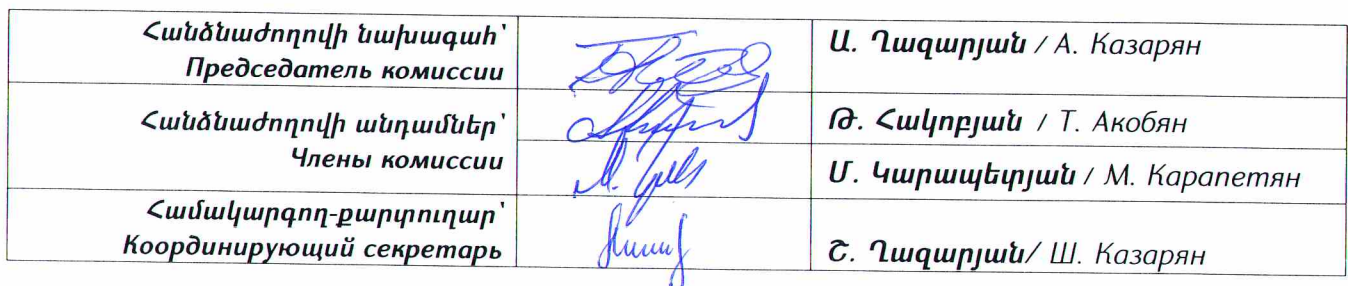 Հանձնաժողովի նախագահ՝
Председатель комиссии
Ա. Ղազարյան / А. Казарян
Հանձնաժողովի անդամներ՝
Члены комиссии
Թ. Հակոբյան / Т. Акобян
Մ. Կարապետյան / М. Карапетян
Համակարգող-քարտուղար՝
Координирующий секретарь
Շ. Ղազարյան/ Ш. Казарян